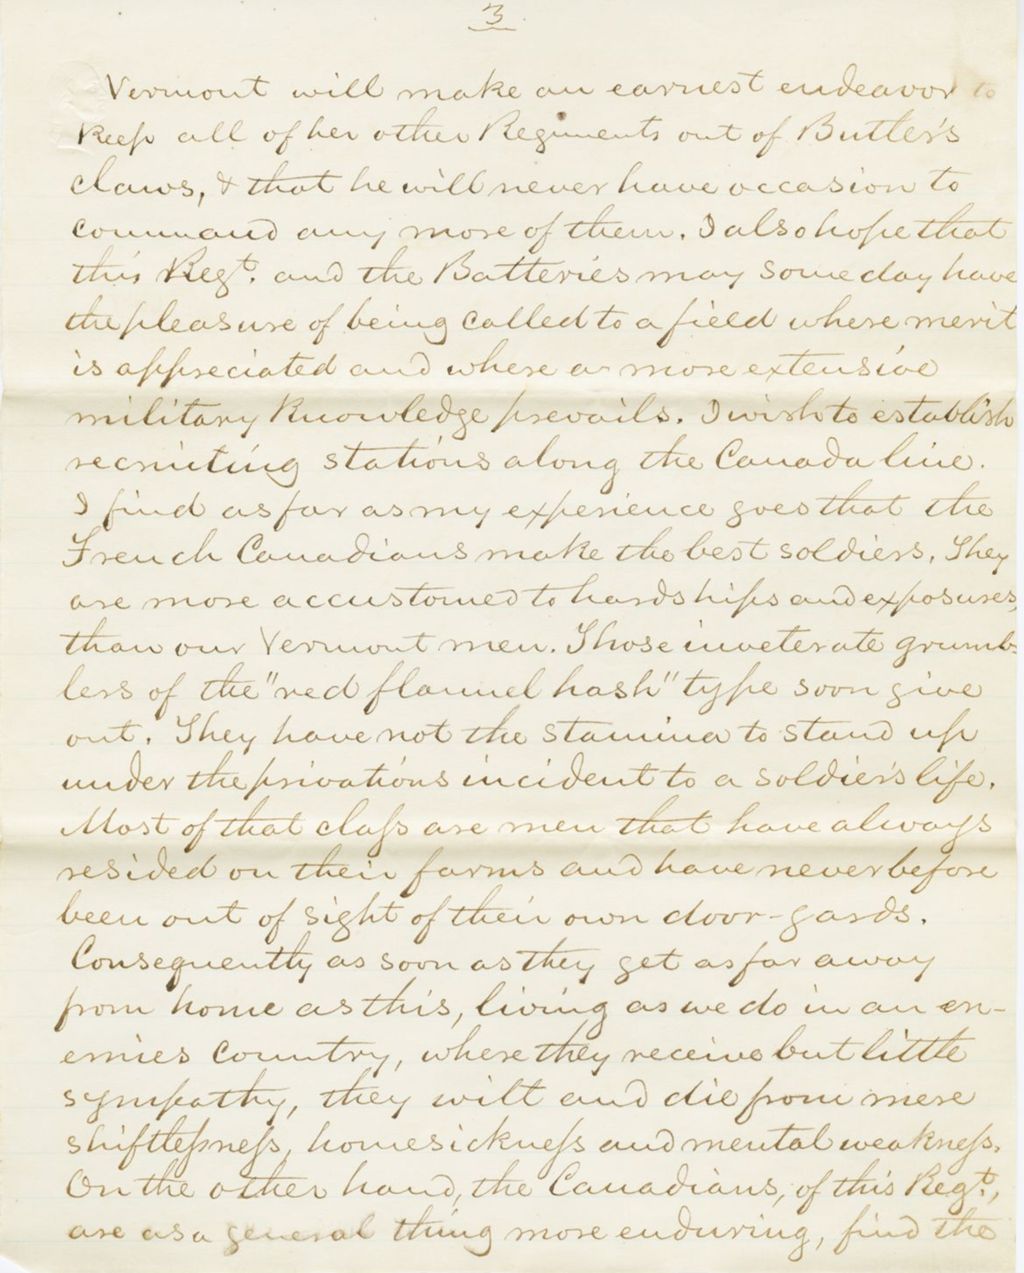 3
Vermont will make an earnest endeavor to
keep all of her other Regiments out of Butler's
claws, & that he will never have occasion to
command any more of them. I also hope that
this Regt. and the Batteries may some day have
the pleasure of being called to a field where merit
is appreciated and where a more extensive
military knowledge prevails. I wish to establish
recruiting stations along the Canada line.
I find as far as my experience goes that the
French Canadians make the best soldiers. They
are more accustomed to hardships and exposures,
than our Vermont men. Those inveterate grumb-
lers of the "red flannel hash" type soon give
out. They have not the stamina to stand up
under the privations incident to a soldier's life.
Most of that class are men that have always
resided on their farms and have never before
been out of sight of their own door-yards.
Consequently as soon as they get as far away
from home as this, living as we do in an en-
emies country, where they receive but little
sympathy, they wilt and die from mere
shiftlessness, homesickness and mental weakness.
On the other hand, the Canadians, of this Regt.,
are as a general thing more enduring, find the